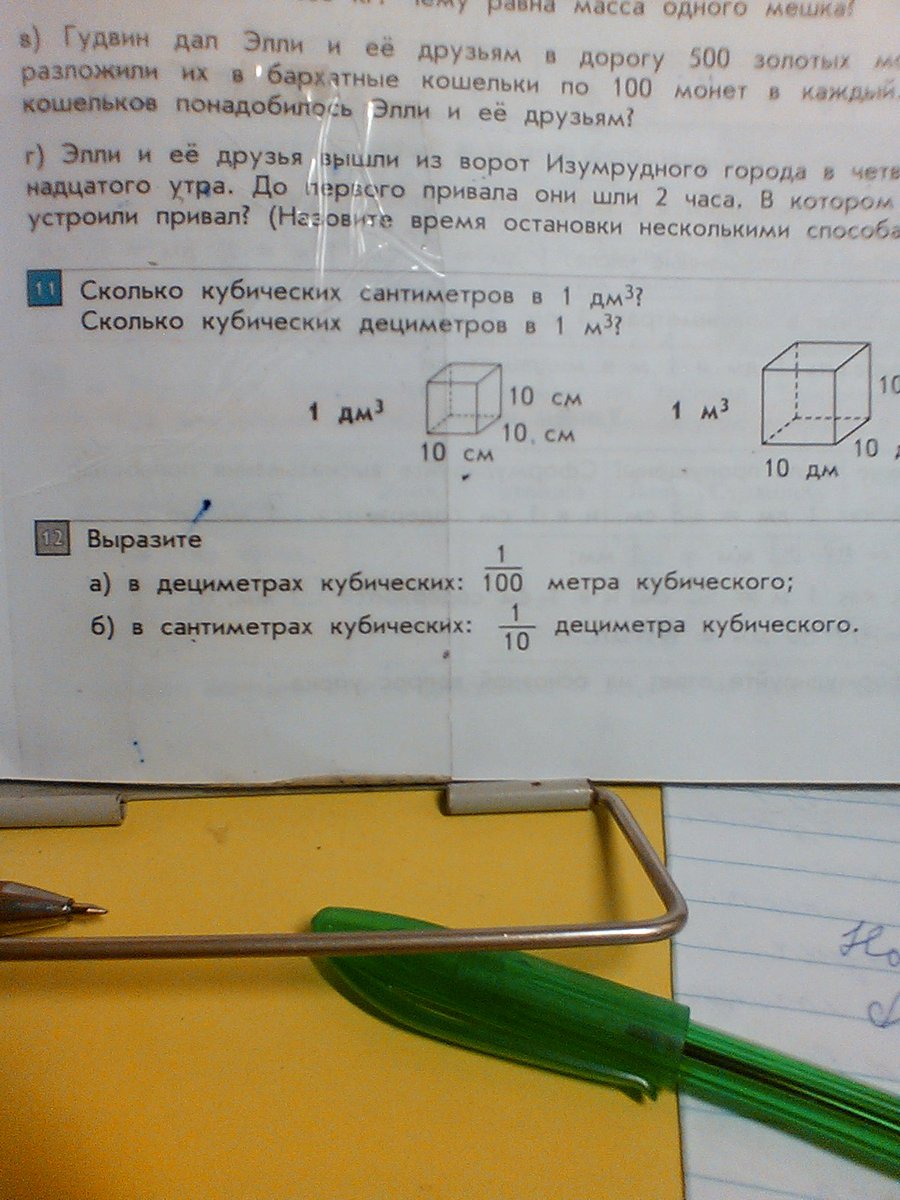 масса одного мешка?
в) Гудвин дал Элли и её друзьям в дорогу 500 золотых
разложили их в бархатные кошельки по 100 монет в каждый.
кошельков понадобилось Элли и её друзьям?
г) Элли и её друзья вышли из ворот Изумрудного города в
надцатого утра. До первого привала они шли 2 часа. В котором
устроили привал? (Назовите время остановки несколькими
11 Сколько кубических сантиметров в 1 дм³?
Сколько кубических дециметров в 1 м³?
1 дм³ 10 см 10 см 10 см 1 м³ 10 10 10 дм
12 Выразите
а) в дециметрах кубических: 1/100 метра кубического;
б) в сантиметрах кубических: 1/10 дециметра кубического.